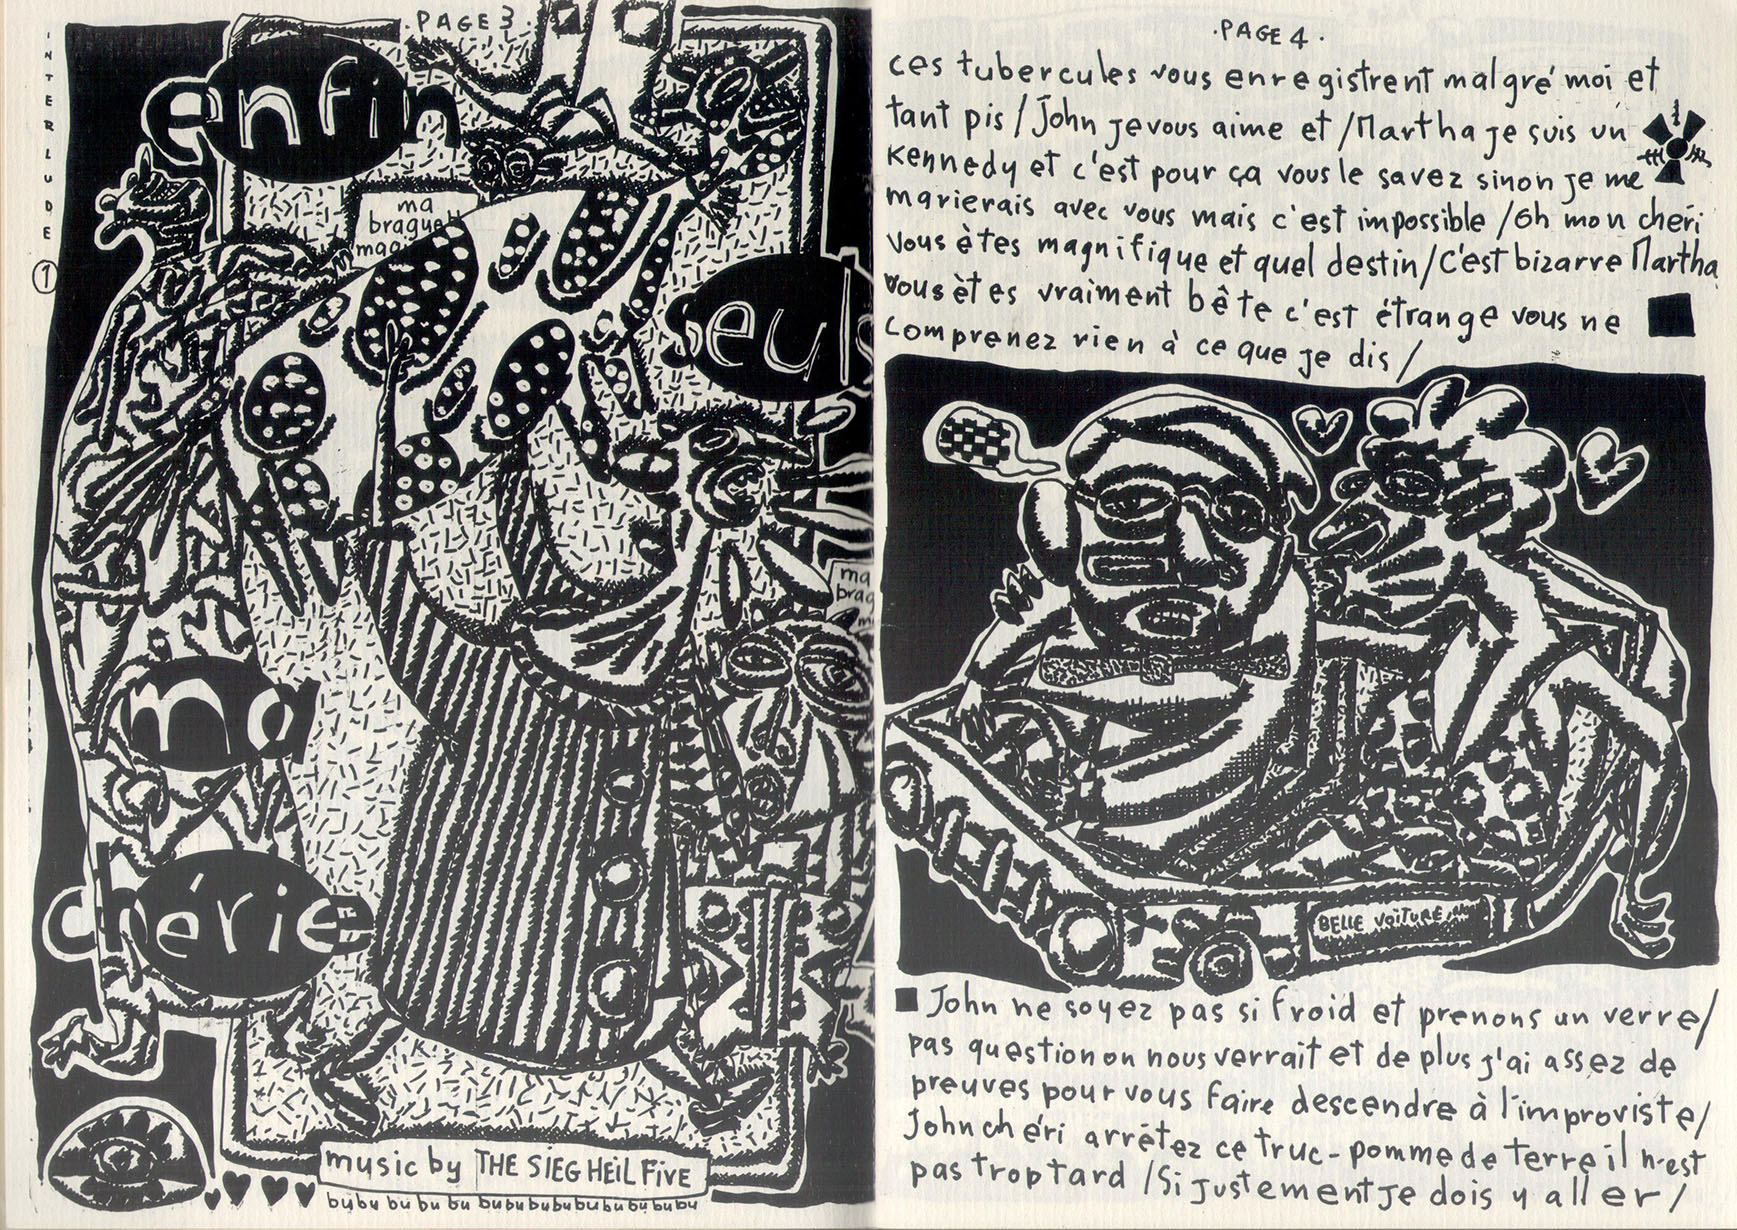 PAGE 3
INTERLUDE
1
enfin
ma
brague
magi
seuls
ma
brag
m
ma
chérie
music by THE SIEG HEIL FIVE
bubu bu bu bu bubububububububu
·PAGE 4·
ces tubercules vous enregistrent malgré moi et
tant pis / John je vous aime et / Martha je suis un
Kennedy et c'est pour ça vous le savez sinon je me
marierais avec vous mais c'est impossible / Oh mon cheri
vous ètes magnifique et quel destin / C'est bizarre Martha
vous ètes vraiment bête c'est étrange vous ne
comprenez rien à ce que je dis /
BELLE VOITURE
John ne soyez pas si froid et prenons un verre /
pas question on nous verrait et de plus j'ai assez de
preuves pour vous faire descendre à l'improviste /
John chéri arrêtez ce truc-pomme de terre il n'est
pas trop tard / Si justement je dois y aller /